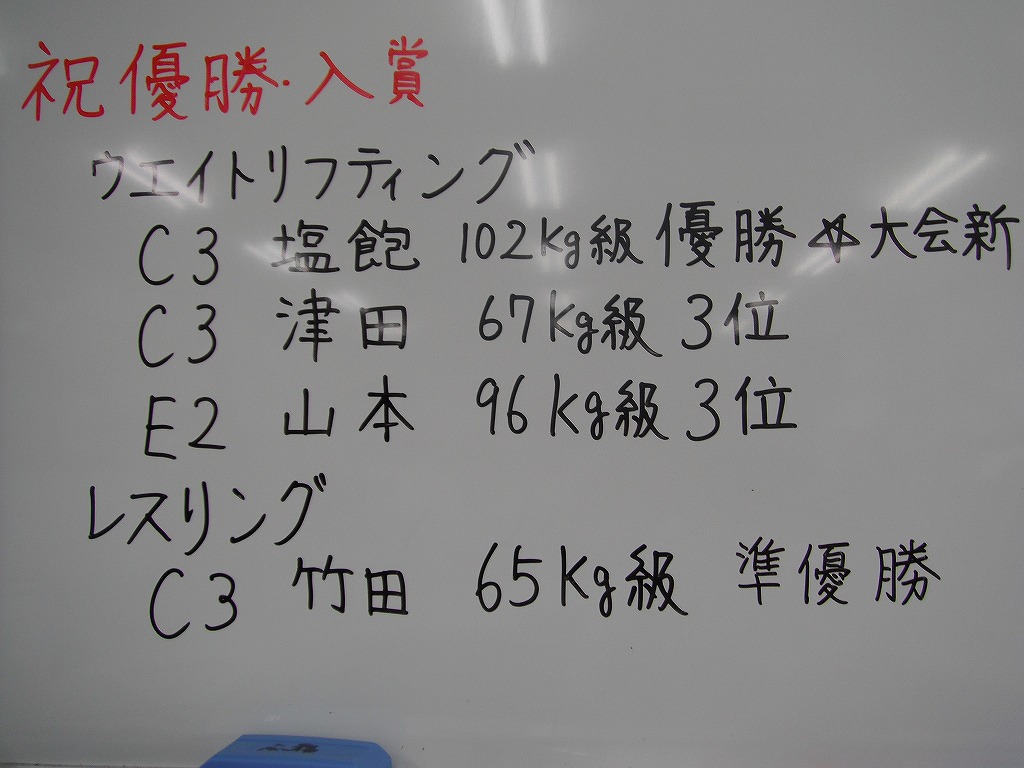 祝優勝・入賞
ウエイトリフティング
C3 塩飽 102kg級 優勝 ☆大会新
C3 津田 67kg級 3位
E2 山本 96kg級 3位
レスリング
C3 竹田 65kg級 準優勝